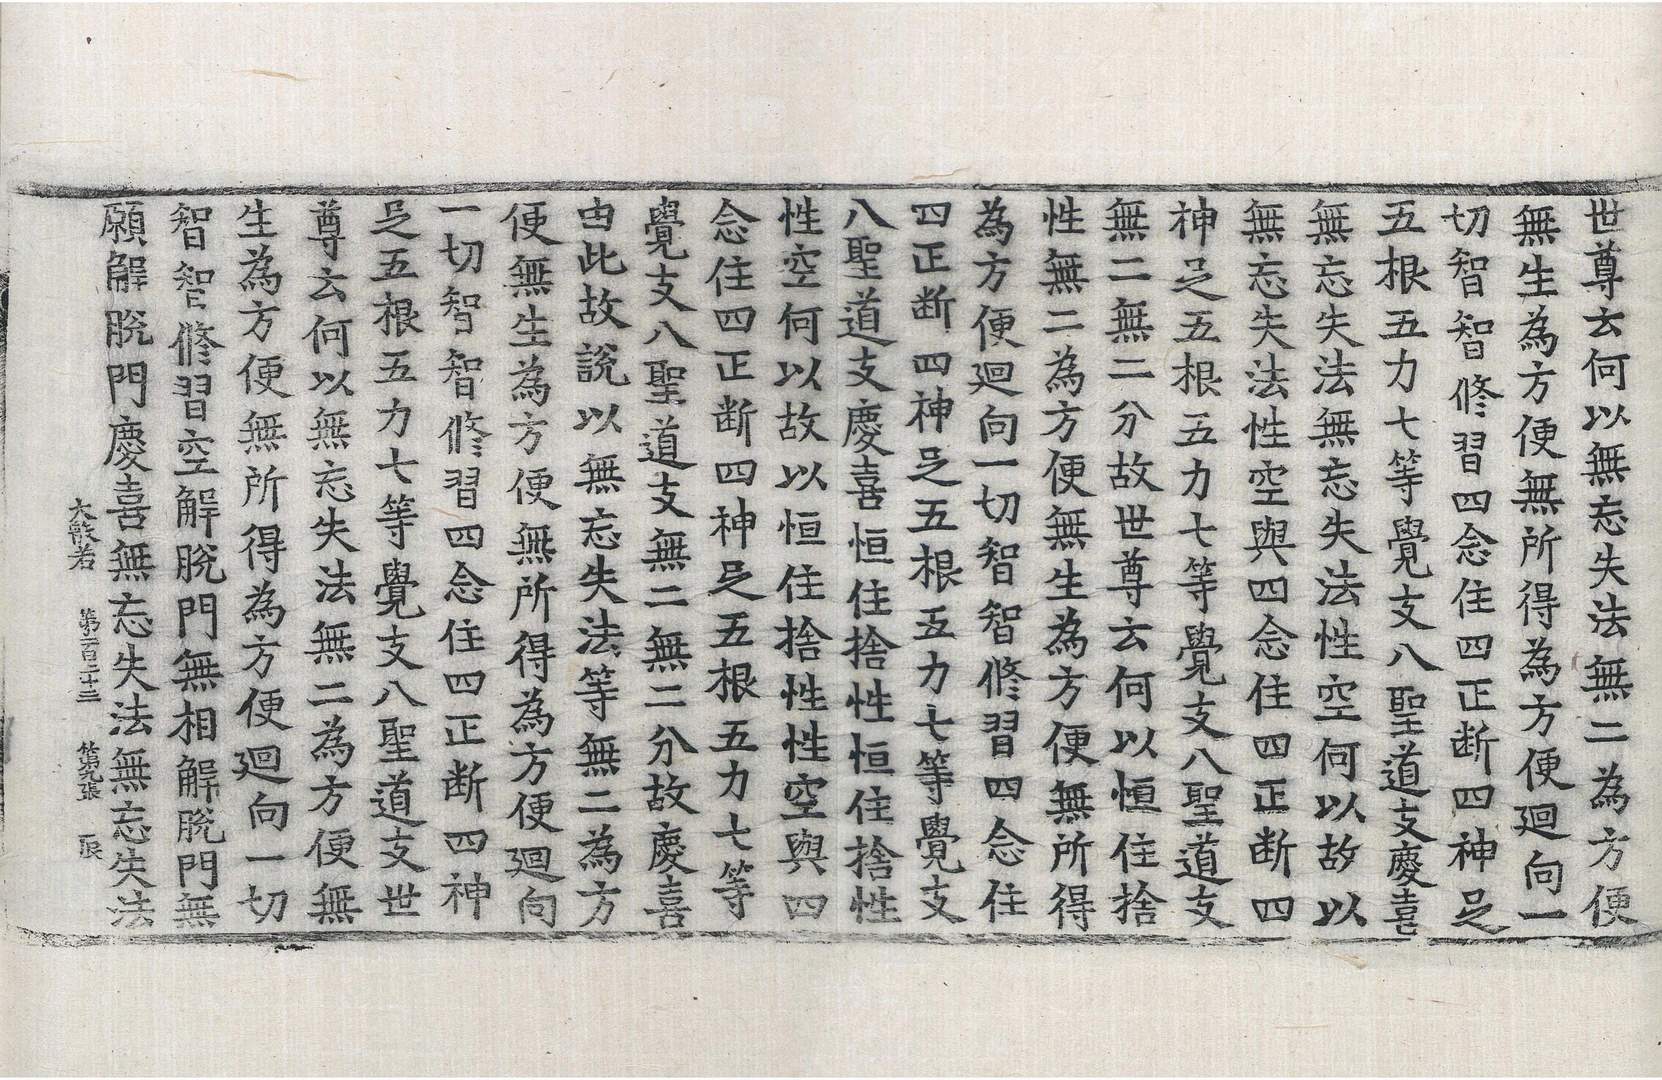 世尊云何以無忘失法無二為方便
無生為方便無所得為方便廻向一
切智智修習四念住四正断四神𠯁
五根五力七等覺支八聖道支慶喜
無忘失法無忘失法性空何以故以
無忘失法性空與四念住四正断四
神𠯁五根五力七等覺支八聖道支
無二無二分故世尊云何以恒住捨
性無二為方便無生為方便無所得
為方便廻向一切智智修習四念住
四正断四神𠯁五根五力七等覺支
八聖道支慶喜恒住捨性恒住捨性
性空何以故以恒住捨性性空與四
念住四正断四神𠯁五根五力七等
覺支八聖道支無二無二分故慶喜
由此故說以無忘失法等無二為方
便無生為方便無所得為方便廻向
一切智智修習四念住四正断四神
𠯁五根五力七等覺支八聖道支世
尊云何以無忘失法無二為方便無
生為方便無所得為方便廻向一切
智智修習空解脫門無相解脫門無
願解脫門慶喜無忘失法無忘失法
大般若 第一百二十三 第九張